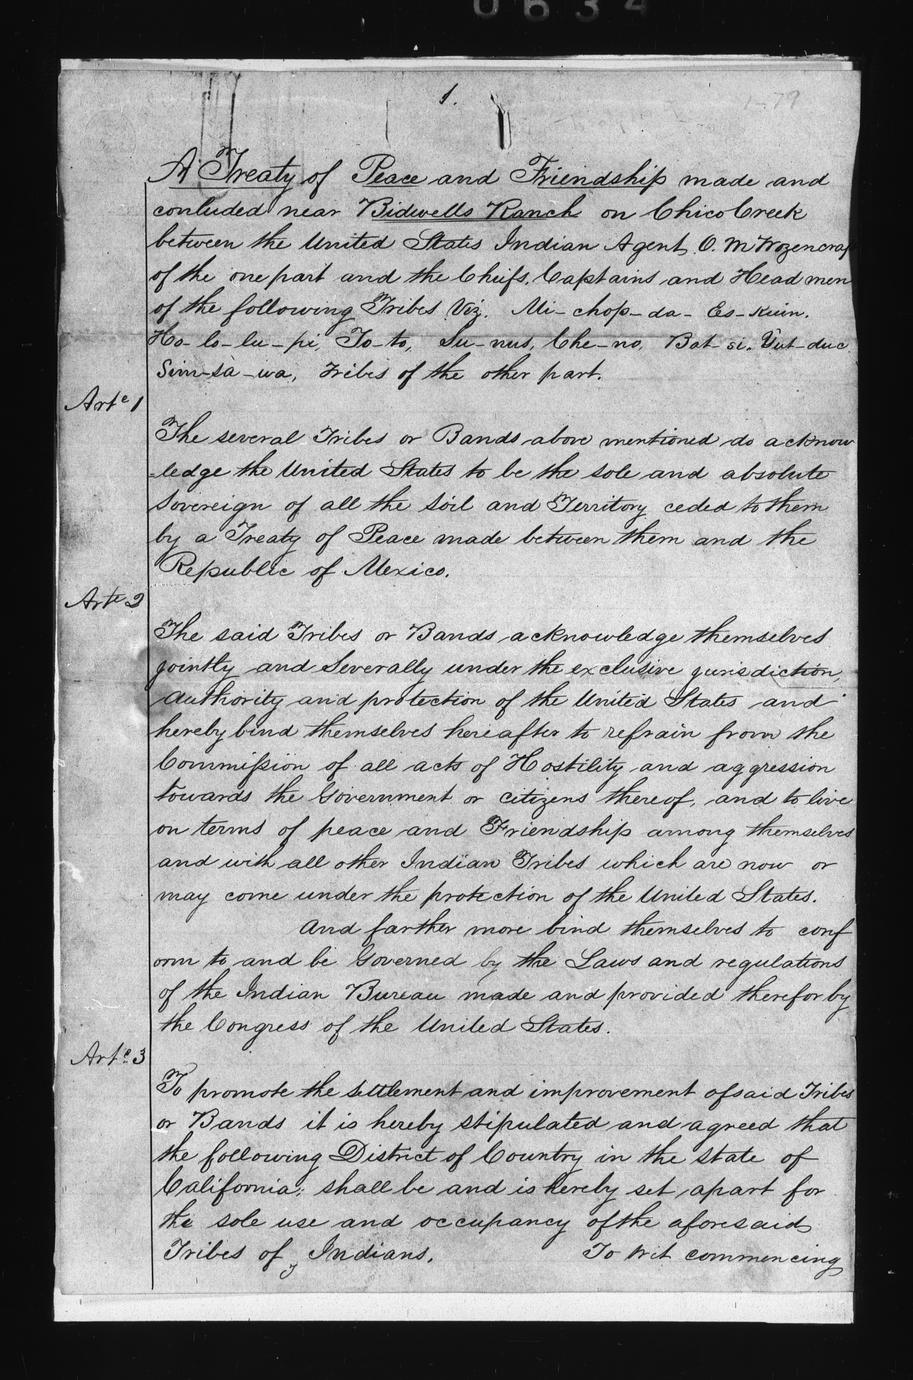 0634
1.
1-79
A Treaty of Peace and Friendship made and
concluded near Bidwells Ranch on Chico Creek
between the United States Indian Agent, O. M Wozencraf
of the one part and the Cheifs, Captains and Head men
of the following Tribes Viz. Mi-chop-da- Es-Kuin.
Ho-lo-lu-pi, To-to, Su-nus, Che-no, Bat-si. Yut-duc
Sim-sa-wa, Tribes of the other part.
Artc 1
The several Tribes or Bands above mentioned do acknow
-ledge the United States to be the sole and absolute
Sovereign of all the Soil and Territory ceded to them
by a Treaty of Peace made between them and the
Republic of Mexico.
Arte 2
The said Tribes or Bands acknowledge themselves
jointly and Severally under the exclusive jurisdiction,
authority and protection of the United States and
hereby bind themselves hereafter to refrain from the
Commission of all acts of Hostility and aggression
towards the Government or citizens thereof, and to live
on terms of peace and Friendship among themselves
and with all other Indian Tribes which are now or
may come under the protection of the United States.
And farther more bind themselves to conf
orm to and be Governed by the Laws and regulations
of the Indian Bureau made and provided therefor by
the Congress of the United States.
Artc 3
To promote the settlement and improvement of said Tribes
or Bands it is hereby stipulated and agreed that
the following District of Country in the state of
California; shall be and is hereby set apart for
the sole use and occupancy of the aforesaid
Tribes of Indians. To wit commencing